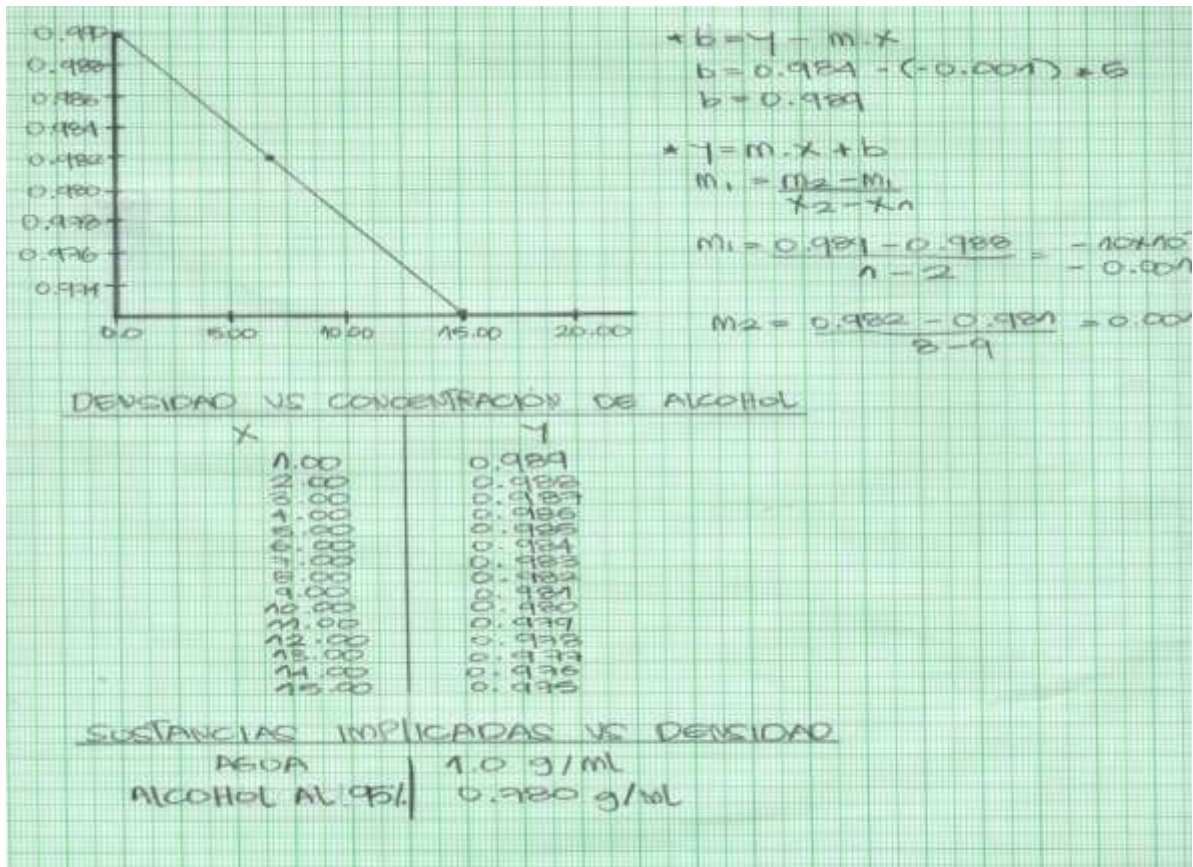 0.990
0.988
0.986
0.984
0.982
0.980
0.978
0.976
0.974
0.0 5.00 10.00 15.00 20.00
* b = y - m.x
b = 0.984 - (-0.001) * 5
b = 0.989
* y = m.x + b
m1 = m2 - m1
x2 - x1
m1 = 0.989 - 0.988 = - 10x10
1 - 2 - 0.001
m2 = 0.982 - 0.981 = 0.001
8 - 9
DENSIDAD VS CONCENTRACIÓN DE ALCOHOL
X Y
1.00 0.989
2.00 0.988
3.00 0.987
4.00 0.986
5.00 0.985
6.00 0.984
7.00 0.983
8.00 0.982
9.00 0.981
10.00 0.980
11.00 0.979
12.00 0.978
13.00 0.977
14.00 0.976
15.00 0.975
SUSTANCIAS IMPLICADAS VS DENSIDAD
AGUA 1.0 g/ml
ALCOHOL AL 95% 0.780 g/ml